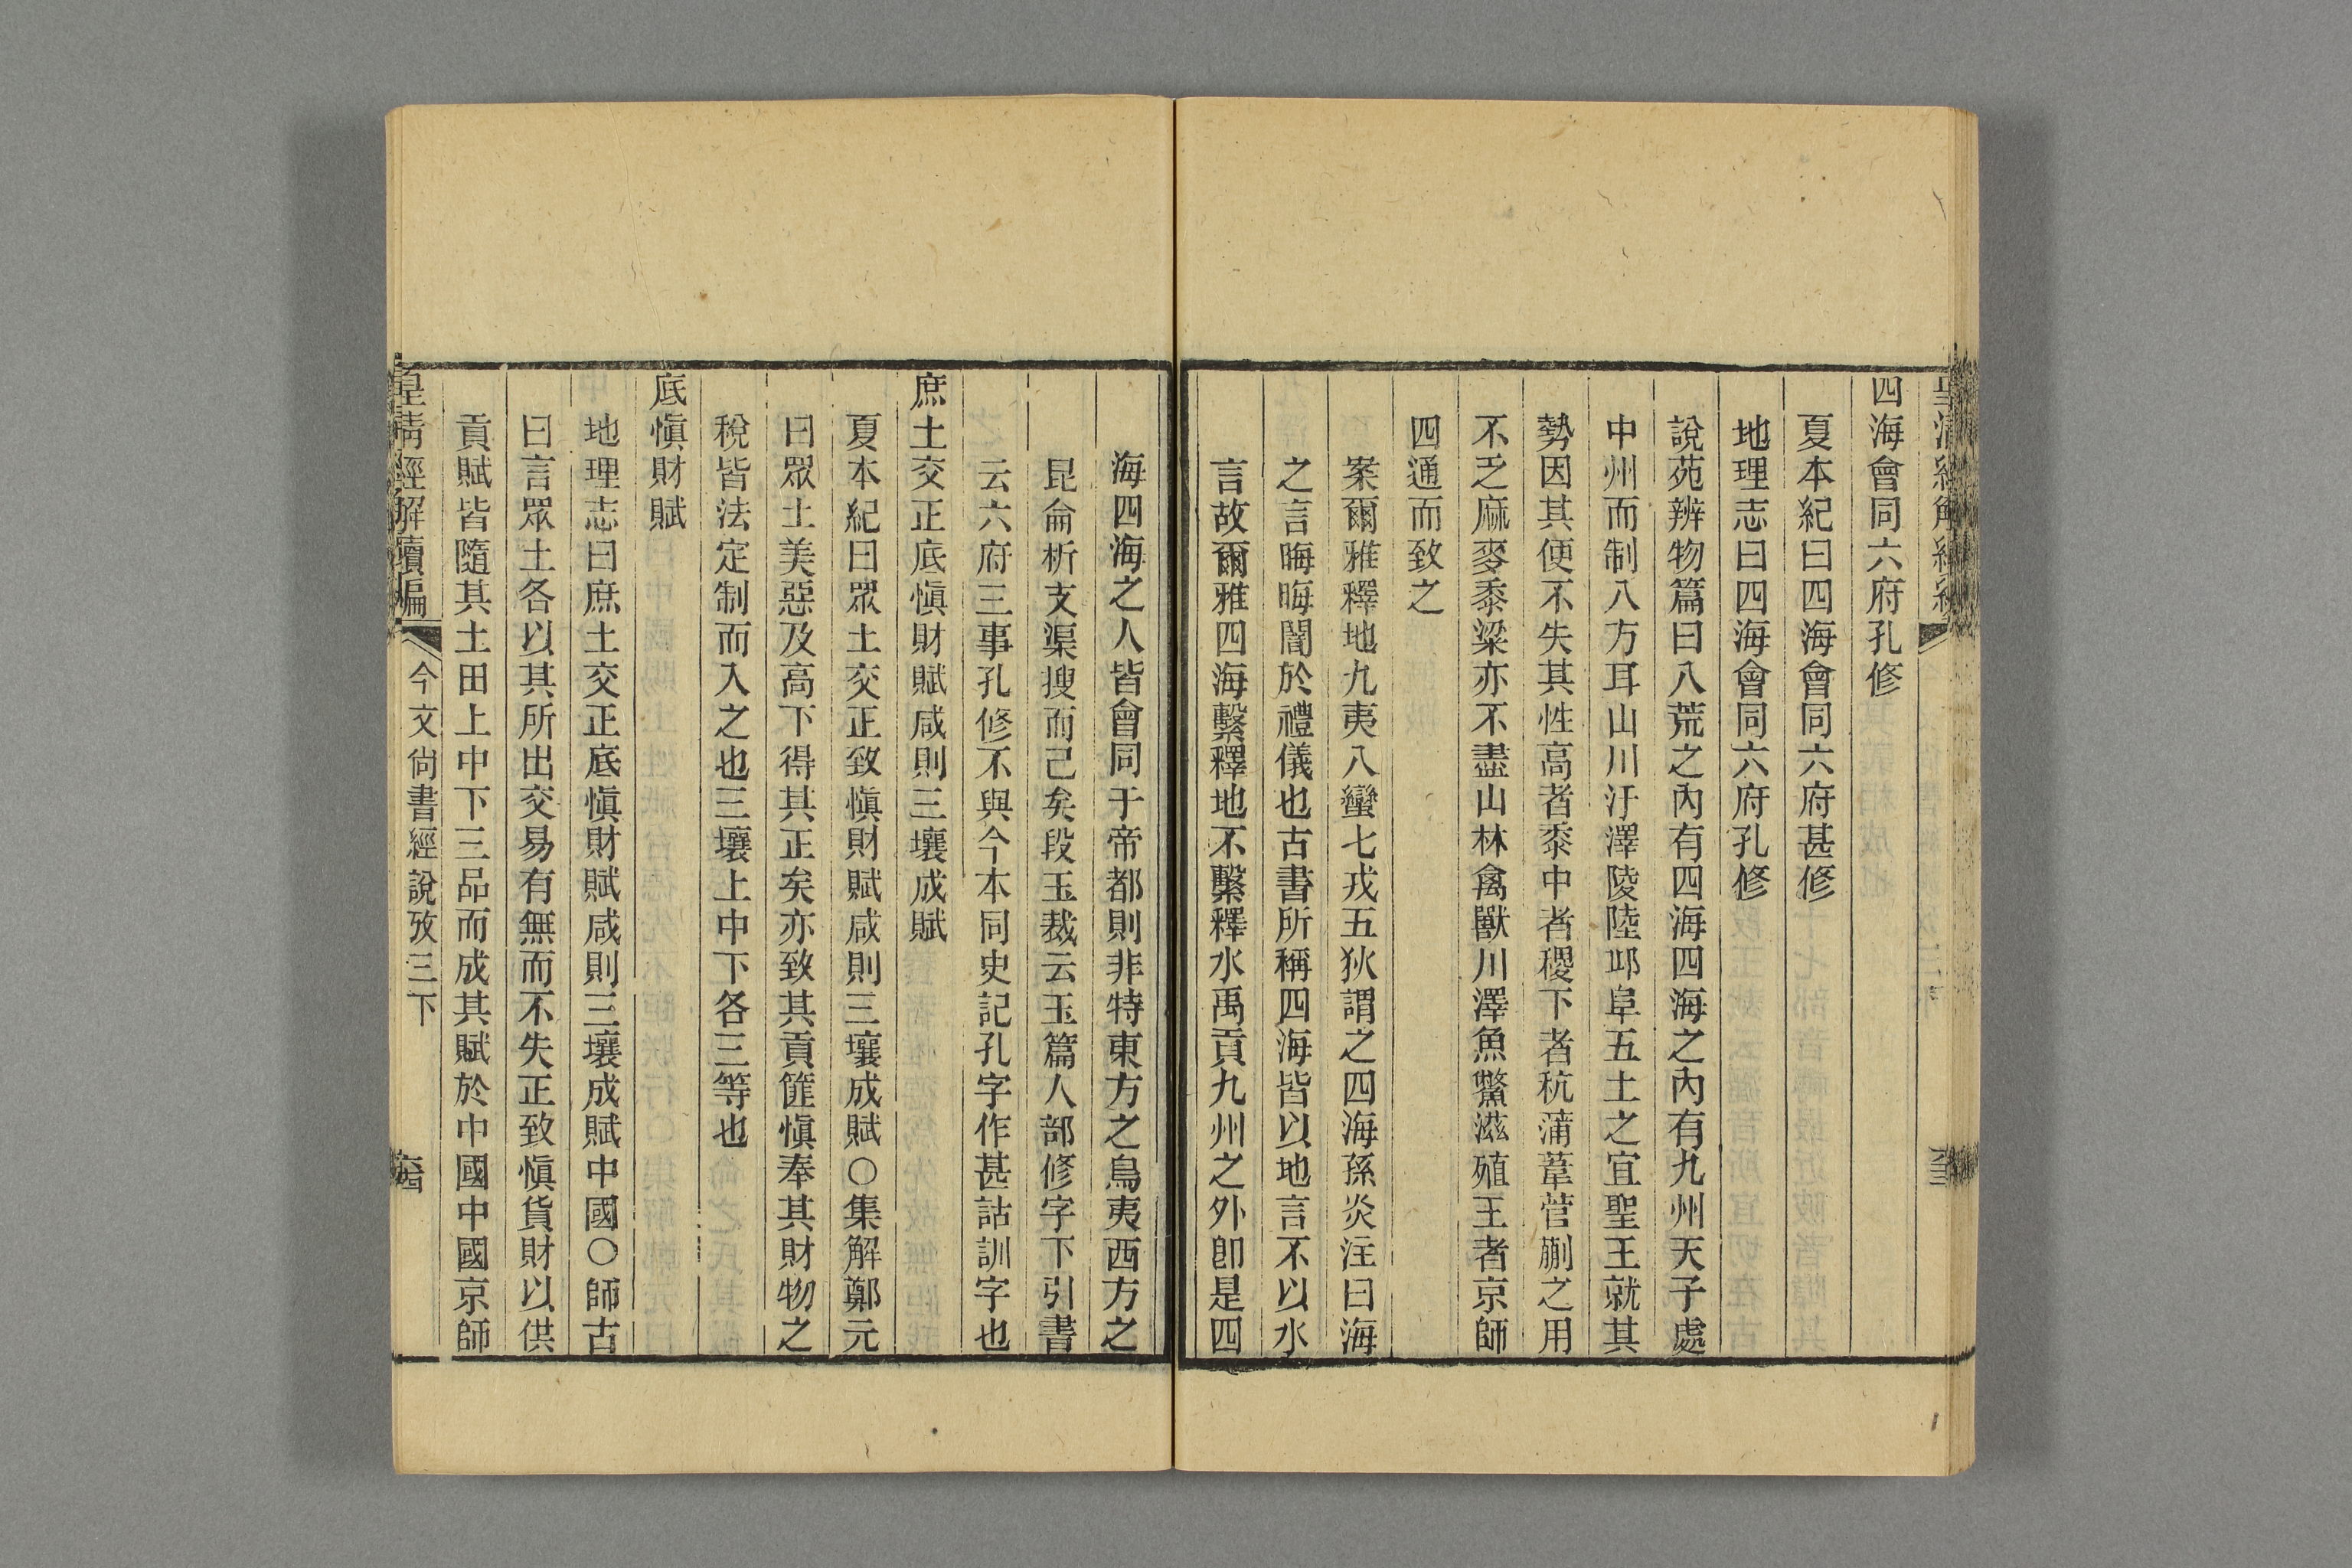 四海會同六府孔修
夏本紀曰四海會同六府甚修
地理志曰四海會同六府孔修
說苑辨物篇曰八荒之內有四海四海之內有九州天子處
中州而制八方耳山川汙澤陵陸邱阜五土之宜聖王就其
勢因其便不失其性高者黍中者稷下者秔蒲葦菅蒯之用
不乏麻麥黍粱亦不盡山林禽獸川澤魚鱉滋殖王者京師
四通而致之
案爾雅釋地九夷八蠻七戎五狄謂之四海孫炎注曰海
之言晦晦闇於禮儀也古書所稱四海皆以地言不以水
言故爾雅四海繫釋地不繫釋水禹貢九州之外卽是四
海四海之人皆會同于帝都則非特東方之鳥夷西方之
昆侖析支渠搜而已矣段玉裁云玉篇人部修字下引書
云六府三事孔修不與今本同史記孔字作甚詁訓字也
庶土交正底愼財賦咸則三壤成賦
夏本紀曰眾土交正致愼財賦咸則三壤成賦○集解鄭元
曰眾土美惡及高下得其正矣亦致其貢篚愼奉其財物之
稅皆法定制而入之也三壤上中下各三等也
底愼財賦
地理志曰庶土交正底愼財賦咸則三壤成賦中國○師古
曰言眾土各以其所出交易有無而不失正致愼貨財以供
貢賦皆隨其土田上中下三品而成其賦於中國中國京師
皇清經解續編
今文尙書經說攷三下